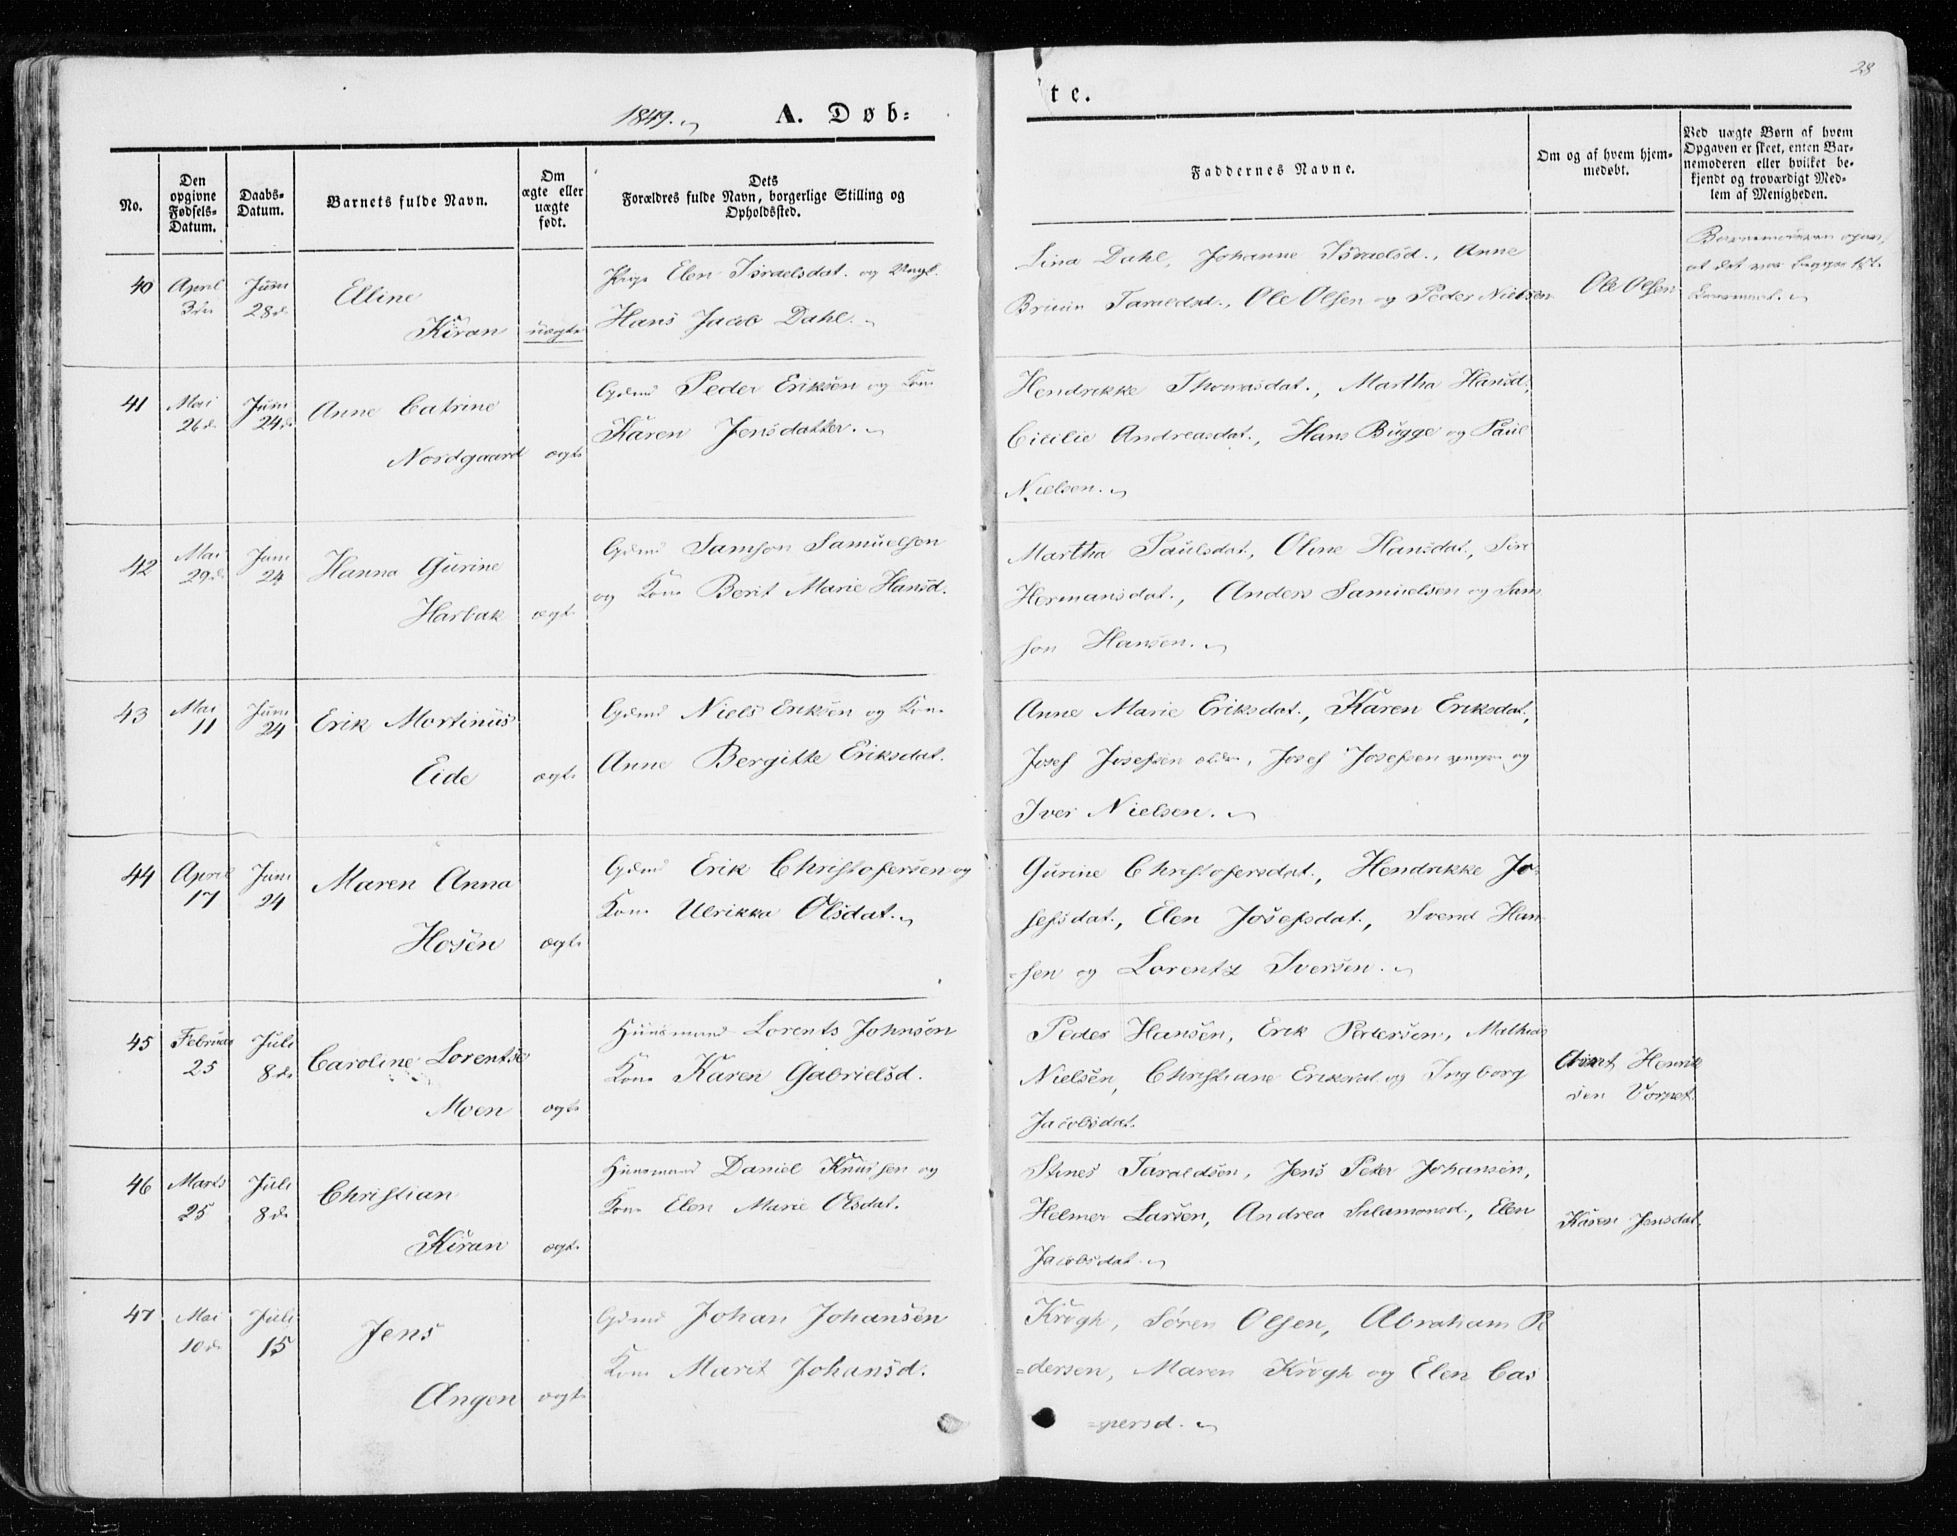 28
1849.
A. Døb-
te.
No.
Den opgivne Fødsels-Datum.
Daabs-Datum.
Barnets fulde Navn.
Om ægte eller uægte født.
Dets Forældres fulde Navn, borgerlige Stilling og Opholdssted.
Faddernes Navne.
Om og af hvem hjem-medøbt.
Ved uægte Børn af hvem Opgaven er skeet, enten Bar-nemoderen eller hvilket be-kjendt og troværdigt Med-lem af Menigheden.
40 April 3die Juni 28d. Elline
Kiran uægte
Pige Elen Israelsdat. og Ungk.
Hans Jacob Dahl.
Lina Dahl, Johanne Israelsd., Anne
Taraldsd., Ole Olsen og Peder Nielsen
Ole Olsen
Barnemoderen
at det var
41 Mai 26d. Juni 24d. Anne Catrine
Nordgaard ægte
Gdmd Peder Eriksen og Kone
Karen Jensdatter.
Hendrikke Thomasdat., Martha Hansd.,
Cicilie Andreasdat., Hans Bugge og Paul
Nielsen.
42 Mai 29d. Juni 24 Hanna Gurine
Harbak ægte
Gdmd Samson Samuelson
og Kone Berit Marie Hansd.
Martha Paulsdat, Oline Hansdat., Siri
Hermansdat., Anders Samuelsen og Sam
son Hansen.
43 Mai 11 Juni 24 Erik Mortinus
Eide ægte
Gdmd Niels Eriksen og Kone
Anne Bergitte Eriksdat.
Anne Marie Eriksdat., Karen Eriksdat,
Josef Josefsen ældre, Josef Josefsen yngre og
Iver Nielsen.
44 April 17 Juni 24 Maren Anna
Hosen ægte
Gdmd Erik Christofersen og
Kone Ulrikka Olsdat.
Gurine Christofersdat., Hendrikke Jo-
sefsdat., Elen Josefsdat., Svend Han
-sen og Lorentz Iversen.
45 Februar 25 Juli 8d. Caroline Lorentse
Moen ægte
Huusmand Lorents Johnsen
Kone Karen Gabrielsd.
Peder Hansen, Erik Pettersen, Mathias
Nielsen, Christiane Eriksdat. og Ingborg
Jacobsdat.
Henrik
sen Vorpet.
46 Marts 25 Juli 8d. Christian
Kiran ægte
Huusmand Daniel Knutsen og
Kone Elen Marie Olsdat.
Stines Taraldsen, Jens Peter Johansen,
Helmer Larsen, Andrea Salamonsd., Elen
Jacobsdat.
Karen Jensdat.
47 Mai 10d. Juli 15 Jens
Angen ægte
Gdmd Johan Johansen
Kone Marit Johansd.
Krogh, Søren Olsen, Abraham Pe
=dersen, Maren Krogh og Elen Cas
=persd.